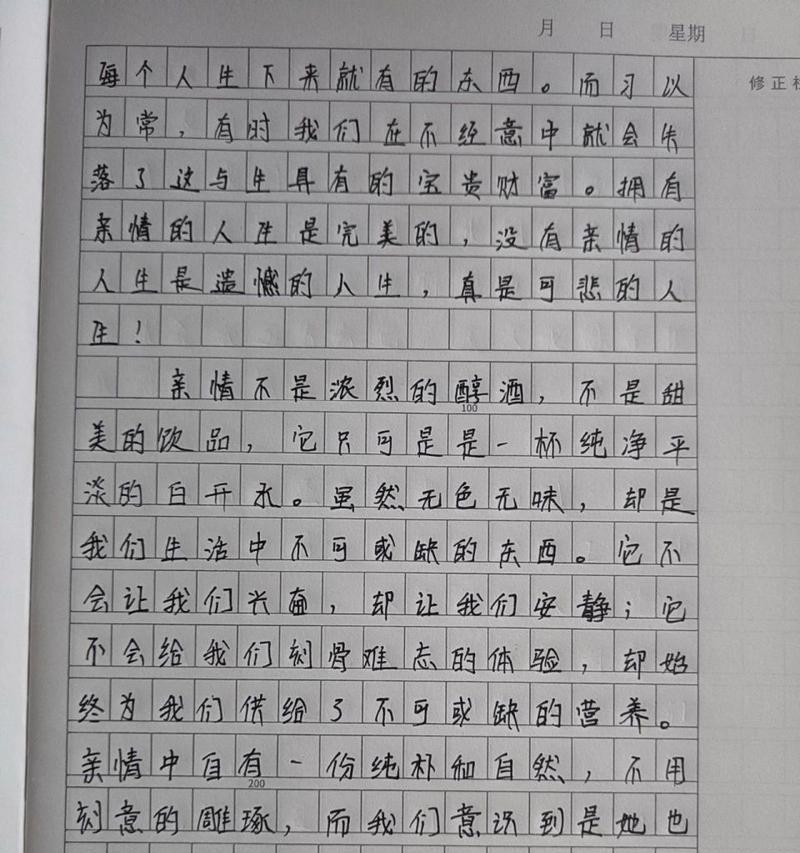 月 日 星期 日
修正栏
每个人生下来就有的东西。而习以
为常，有时我们在不经意中就会失
落了这与生具有的宝贵财富。拥有
亲情的人生是完美的，没有亲情的
人生是遗憾的人生，真是可悲的人
生！
亲情不是浓烈的醇酒，不是甜
100
美的饮品，它只可是是一杯纯净平
淡的白开水。虽然无色无味，却是
我们生活中不可或缺的东西。它不
会让我们兴奋，却让我们安静；它
不会给我们刻骨难忘的体验，却始
终为我们供给了不可或缺的营养。
亲情中自有一份纯朴和自然，不用
200
刻意的雕琢，而我们意识到是她也